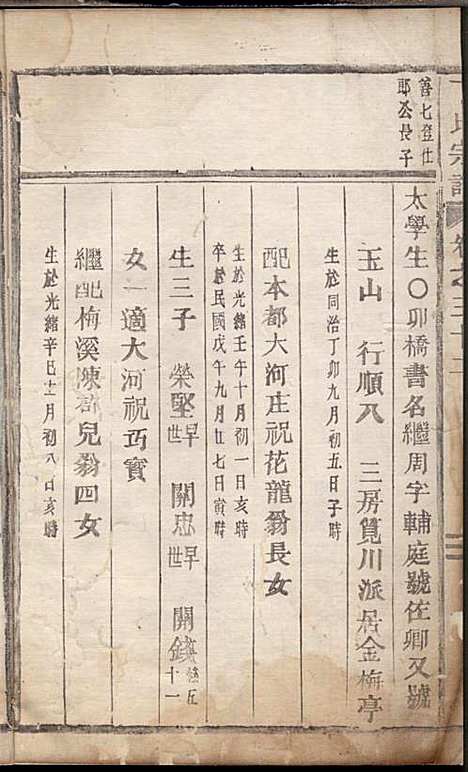 氏宗譜 卷之三十二
善七登仕
郎公長子
太學生〇卯橋書名繼周字輔庭號佐卿又號
玉山 行順八 三房覓川派居金梅亭
生於同治丁卯九月初五日子時
配本都大河庄祝花龍翁長女
生於光緒壬午十月初一日亥時
卒於民國戊午九月廿七日寅時
生三子 榮堅早世 關忠早世 關錢
十一
女一適大河祝巧寶
繼配梅溪陳 兒翁四女
生於光緒辛巳十二月初八日亥時